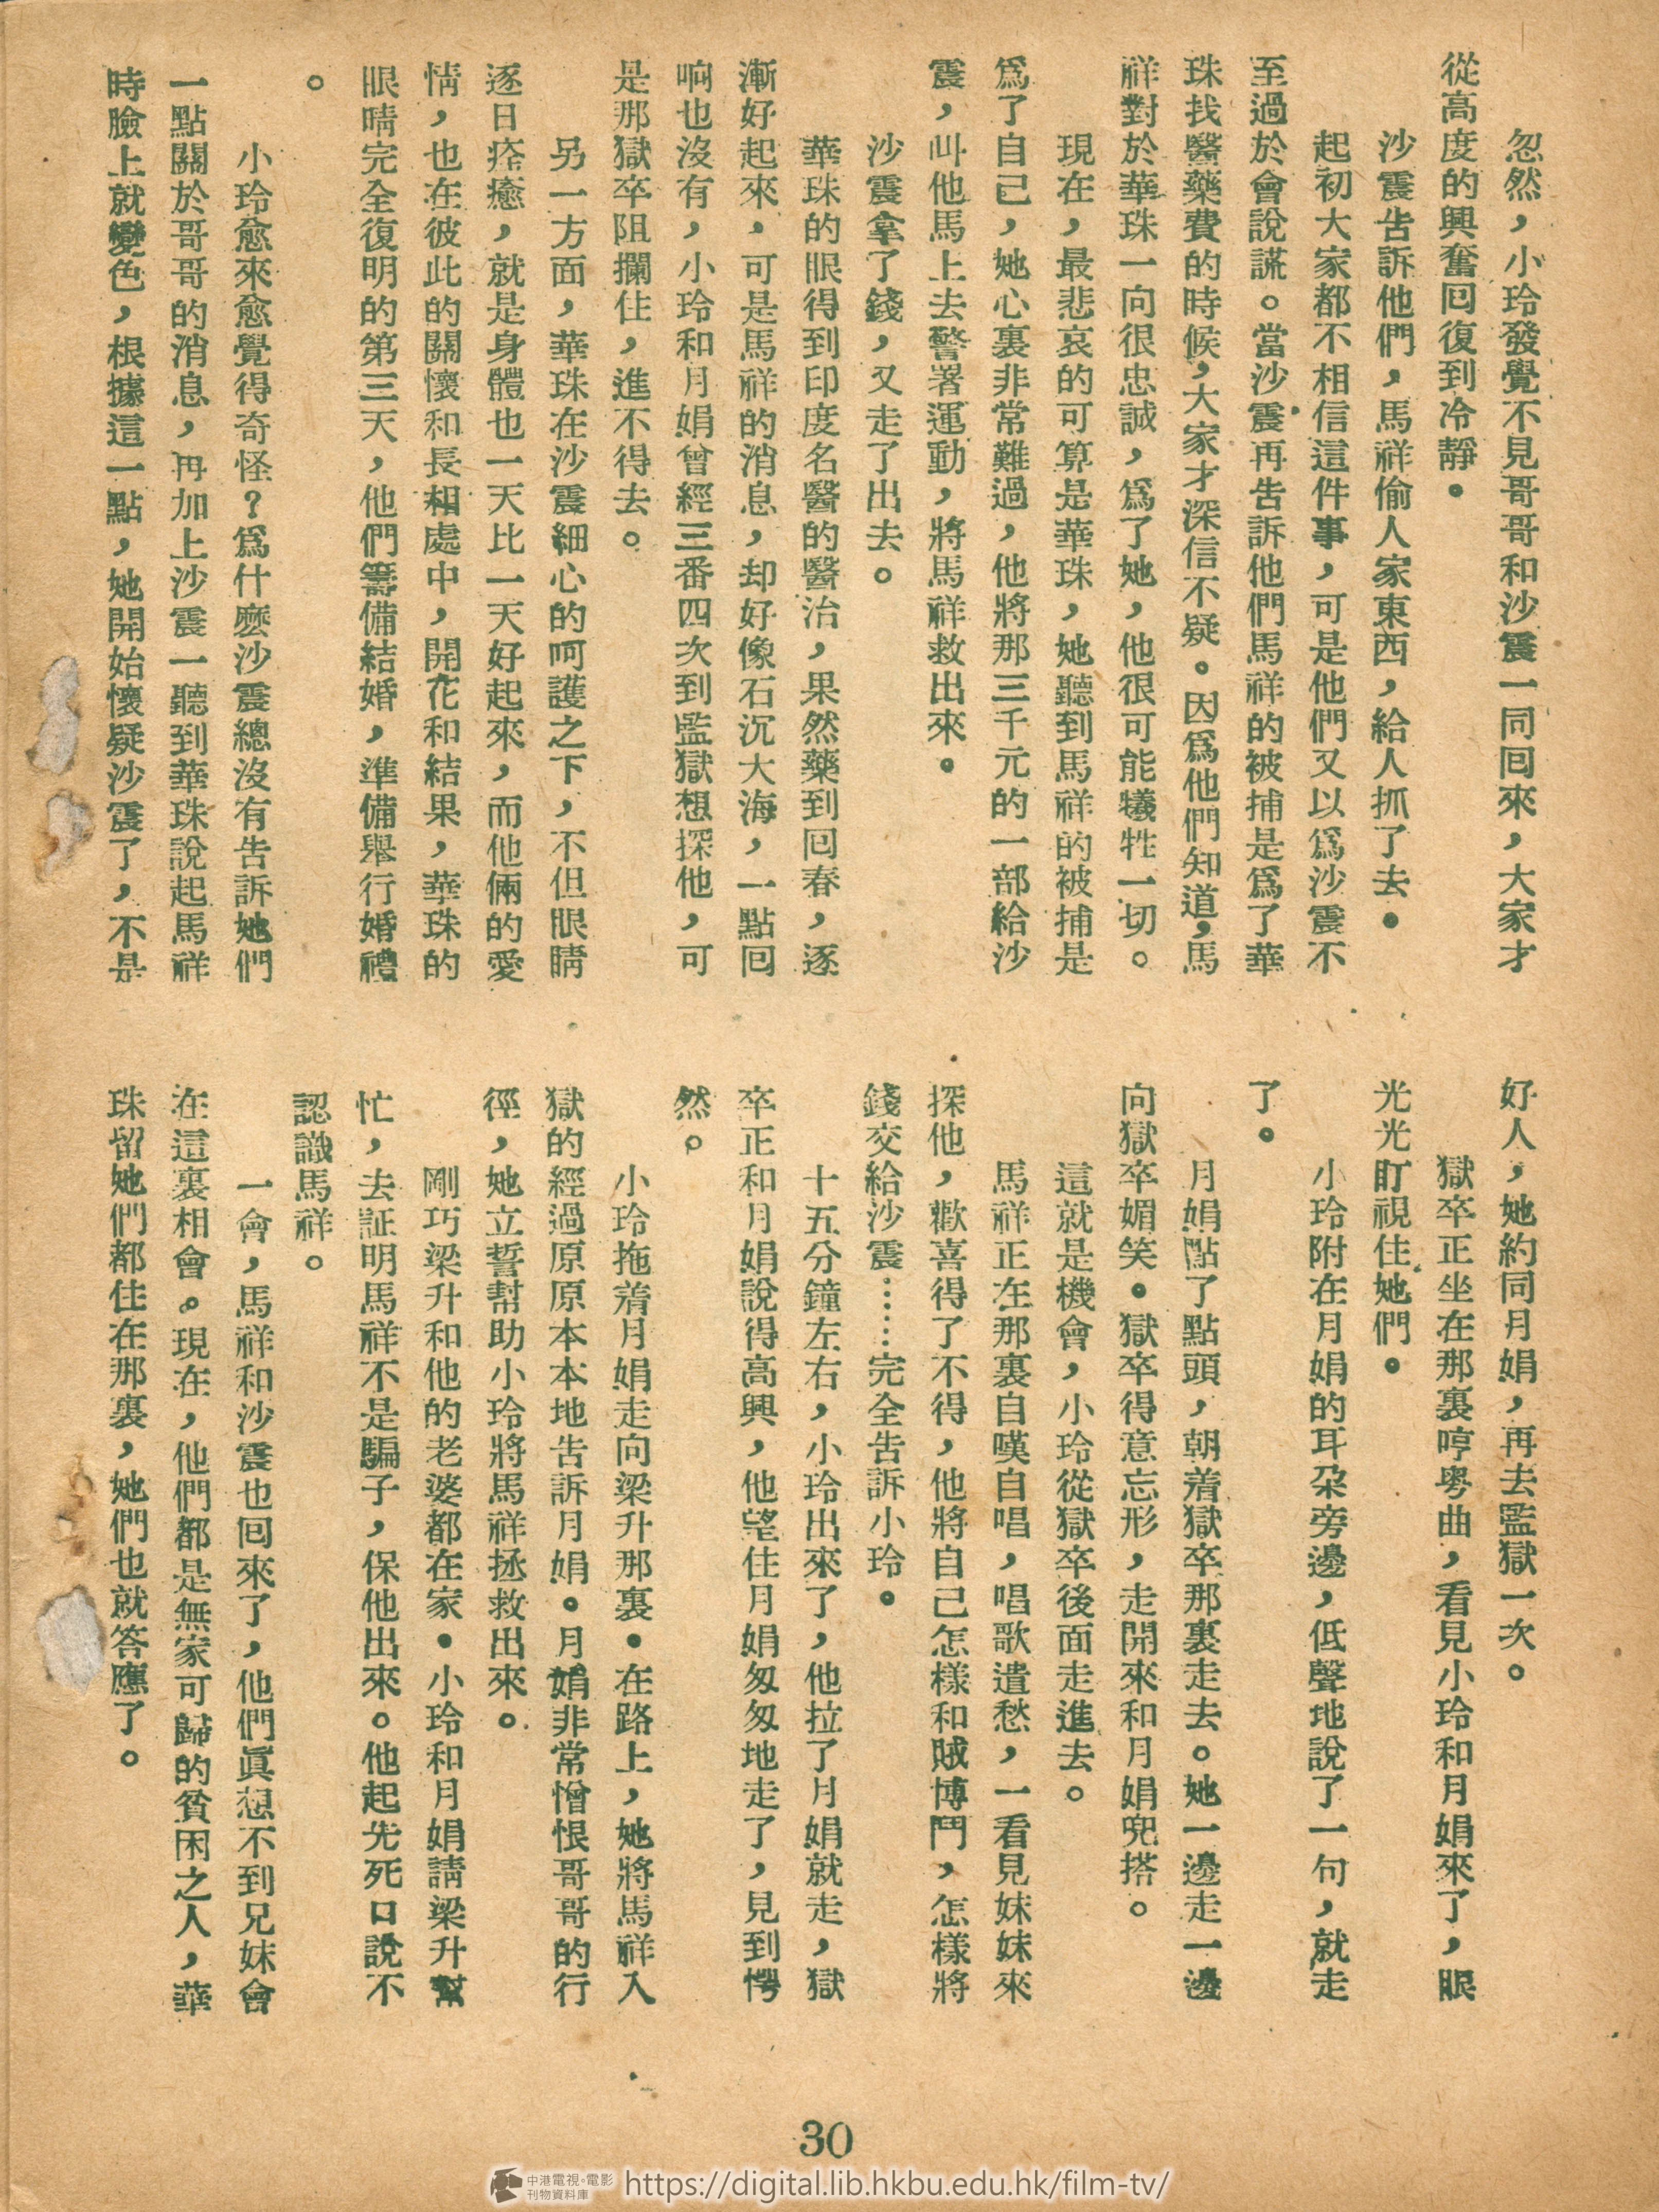 忽然，小玲發覺不見哥哥和沙震一同回來，大家才
從高度的興奮回復到冷靜。
沙震告訴他們，馬祥偷人家東西，給人抓了去。
起初大家都不相信這件事，可是他們又以爲沙震不
至過於會說謊。當沙震再告訴他們馬祥的被捕是爲了華
珠找醫藥費的時候，大家才深信不疑。因爲他們知道，馬
祥對於華珠一向很忠誠，爲了她，他很可能犧牲一切。
現在，最悲哀的可算是華珠，她聽到馬祥的被捕是
爲了自己，她心裏非常難過，他將那三千元的一部給沙
震，叫他馬上去警署運動，將馬祥救出來。
沙震拿了錢，又走了出去。
華珠的眼得到印度名醫的醫治，果然藥到回春，逐
漸好起來，可是馬祥的消息，却好像石沉大海，一點回
响也沒有，小玲和月娟曾經三番四次到監獄想探他，可
是那獄卒阻攔住，進不得去。
另一方面，華珠在沙震細心的呵護之下，不但眼睛
逐日痊癒，就是身體也一天比一天好起來，而他倆的愛
情，也在彼此的關懷和長相處中，開花和結果，華珠的
眼睛完全復明的第三天，他們籌備結婚，準備舉行婚禮
。
小玲愈來愈覺得奇怪？爲什麽沙震總沒有告訴她們
一點關於哥哥的消息，再加上沙震一聽到華珠說起馬祥
時臉上就變色，根據這一點，她開始懷疑沙震了，不是
好人，她約同月娟，再去監獄一次。
獄卒正坐在那裏哼粤曲，看見小玲和月娟來了，眼
光光盯視住她們。
小玲附在月娟的耳朵旁邊，低聲地說了一句，就走
了。
月娟點了點頭，朝着獄卒那裏走去。她一邊走一邊
向獄卒媚笑。獄卒得意忘形，走開來和月娟兜搭。
這就是機會，小玲從獄卒後面走進去。
馬祥正在那裏自嘆自唱，唱歌遣愁，一看見妹妹來
探他，歡喜得了不得，他將自己怎樣和賊博鬥，怎樣將
錢交給沙震……完全告訴小玲。
十五分鐘左右，小玲出來了，他拉了月娟就走，獄
卒正和月娟說得高興，他望住月娟匆匆地走了，見到愕
然。
小玲拖着月娟走向梁升那裏。在路上，她將馬祥入
獄的經過原原本本地告訴月娟。月娟非常憎恨哥哥的行
徑，她立誓幫助小玲將馬祥拯救出來。
剛巧梁升和他的老婆都在家。小玲和月娟請梁升幫
忙，去証明馬祥不是騙子，保他出來。他起先死口說不
認識馬祥。
一會，馬祥和沙震也回來了，他們眞想不到兄妹會
在這裏相會。現在，他們都是無家可歸的貧困之人，華
珠留她們都住在那裏，她們也就答應了。
30
中港電視·電影
刊物資料庫
https://digital.lib.hkbu.edu.hk/film-tv/